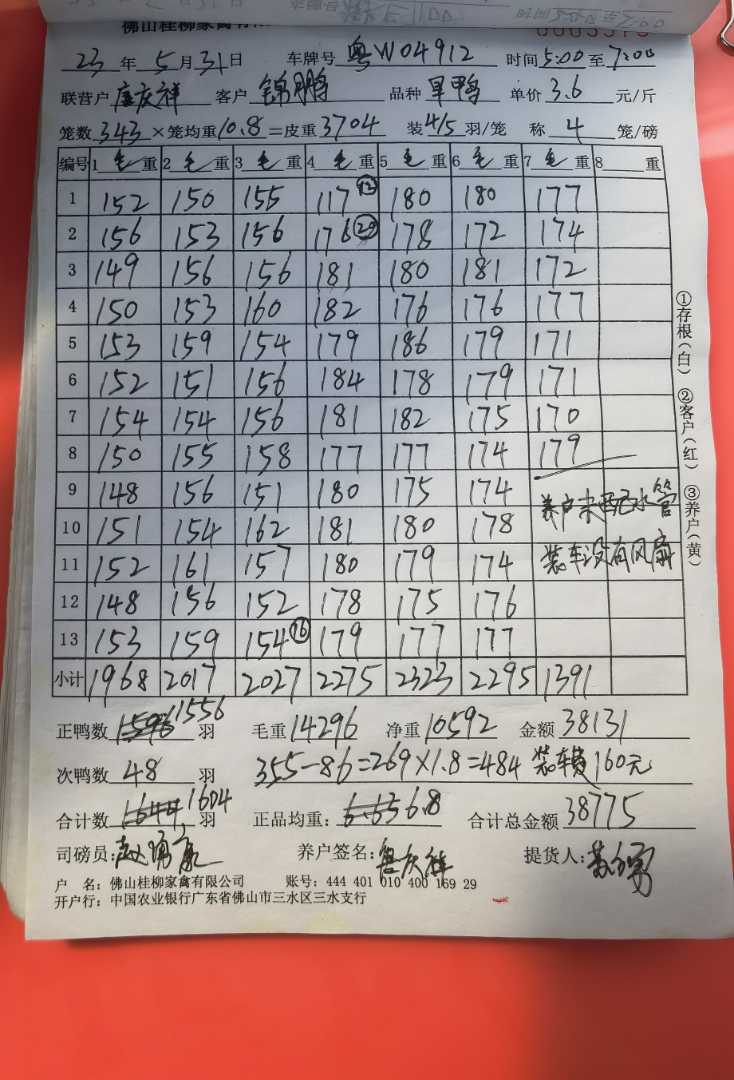 佛山桂柳家禽有
23年5月31日 车牌号 粤W04912 时间5:00至7:00
联营户 庆祥 客户 锦鹏 品种 旱鸭 单价3.6元/斤
笼数343×笼均重10.8=皮重3704 装4/5羽/笼 称4笼/磅
编号 1毛重 2毛重 3毛重 4毛重 5毛重 6毛重 7毛重 8重
1 152 150 155 117⑫ 180 180 177
2 156 153 156 176 178 172 174
3 149 156 156 181 180 181 172
4 150 153 160 182 176 176 177
5 153 159 154 179 186 179 171
6 152 151 156 184 178 179 171
7 154 154 156 181 182 175 170
8 150 155 158 177 177 174 179
9 148 156 151 180 175 174 养户未配水管
10 151 154 162 181 180 178
11 152 161 157 180 179 174 装车没有风扇
12 148 156 152 178 175 176
13 153 159 154⑯ 179 177 177
小计 1968 2017 2027 2275 2323 2295 1391
正鸭数 1596 1556羽 毛重14296 净重10592 金额38131
次鸭数 48羽 355-86=269×1.8=484 装车费160元
合计数 1644 1604羽 正品均重:6.63 6.8 合计总金额38775
司磅员: 养户签名:庆祥 提货人:
户 名:佛山桂柳家禽有限公司 账号:444 401 010 400 169 29
开户行:中国农业银行广东省佛山市三水区三水支行
①存根(白) ②客户(红) ③养户(黄)